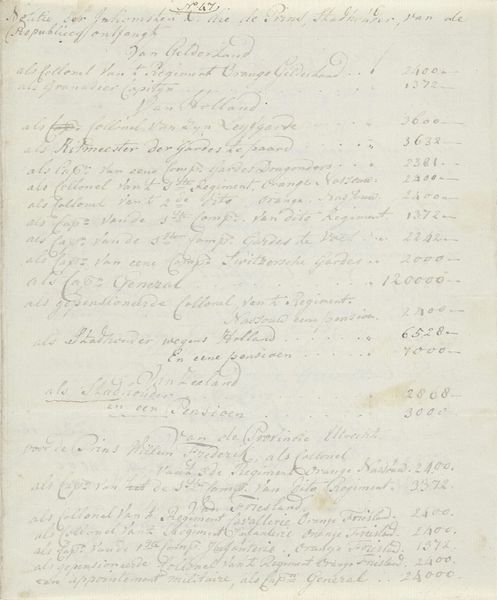 No 47
Notitie der Inkomsten die de Prins Stadhouder, van de
Republiecq ontfangt
Van Gelderland
als Collonel van 't Regiment Orange Gelderland .. 2400.—
als Granadier Capityn . . . 1372.—
Van Holland
als Collonel van Zyn Leyfgarde . . . 3600—
als Ritmeester der Gardes te paard . . 3632—
als Capn. van eene Comp. Gardes Dragonders . . 2381.—
als Collonel van 't 1ste Regiment, Orange Nassouw . 2400—
als Collonel van 't 2de dito Orange Nassouw . 2400—
als Capn. van de 1ste Comp. van dito Regiment 1372—
als Capn. van de 1ste Comp. Gardes te Voet . . 2242—
als Capn. van eene Comp. Switzersche Gardes . . 2000—
als Capn. General . . . 120000—
als gepensioneerde Collonel van 't Regiment
Nassouw een pensioen . 2400—
als Stadhouder wegens Holland . . 6528—
En eene pensioen . . 7000—
Van Zeeland
als Stadhouder . . . 2868—
en een Pensioen . . . 3000
Van de Provincie Utrecht
voor de Prins Willem Frederik, als Collonel
van 't 2de Regiment Orange Nassouw. 2400.
als Capn. van de 1ste Comp. van dito Regiment. 1372.
Vriesland
als Collonel van 't Regiment Cavallerie Oranje Friesland. 2400.
als Collonel van 't Regiment Infanterie Oranje Friesland 2400.
als Capn. van de 1ste Comp. Infanterie Oranje Friesland 1372
als gepensioneerde Collonel van 't Regiment Oranje Friesland. 2400.
een appointement militaire, als Capn. General . . 24000.